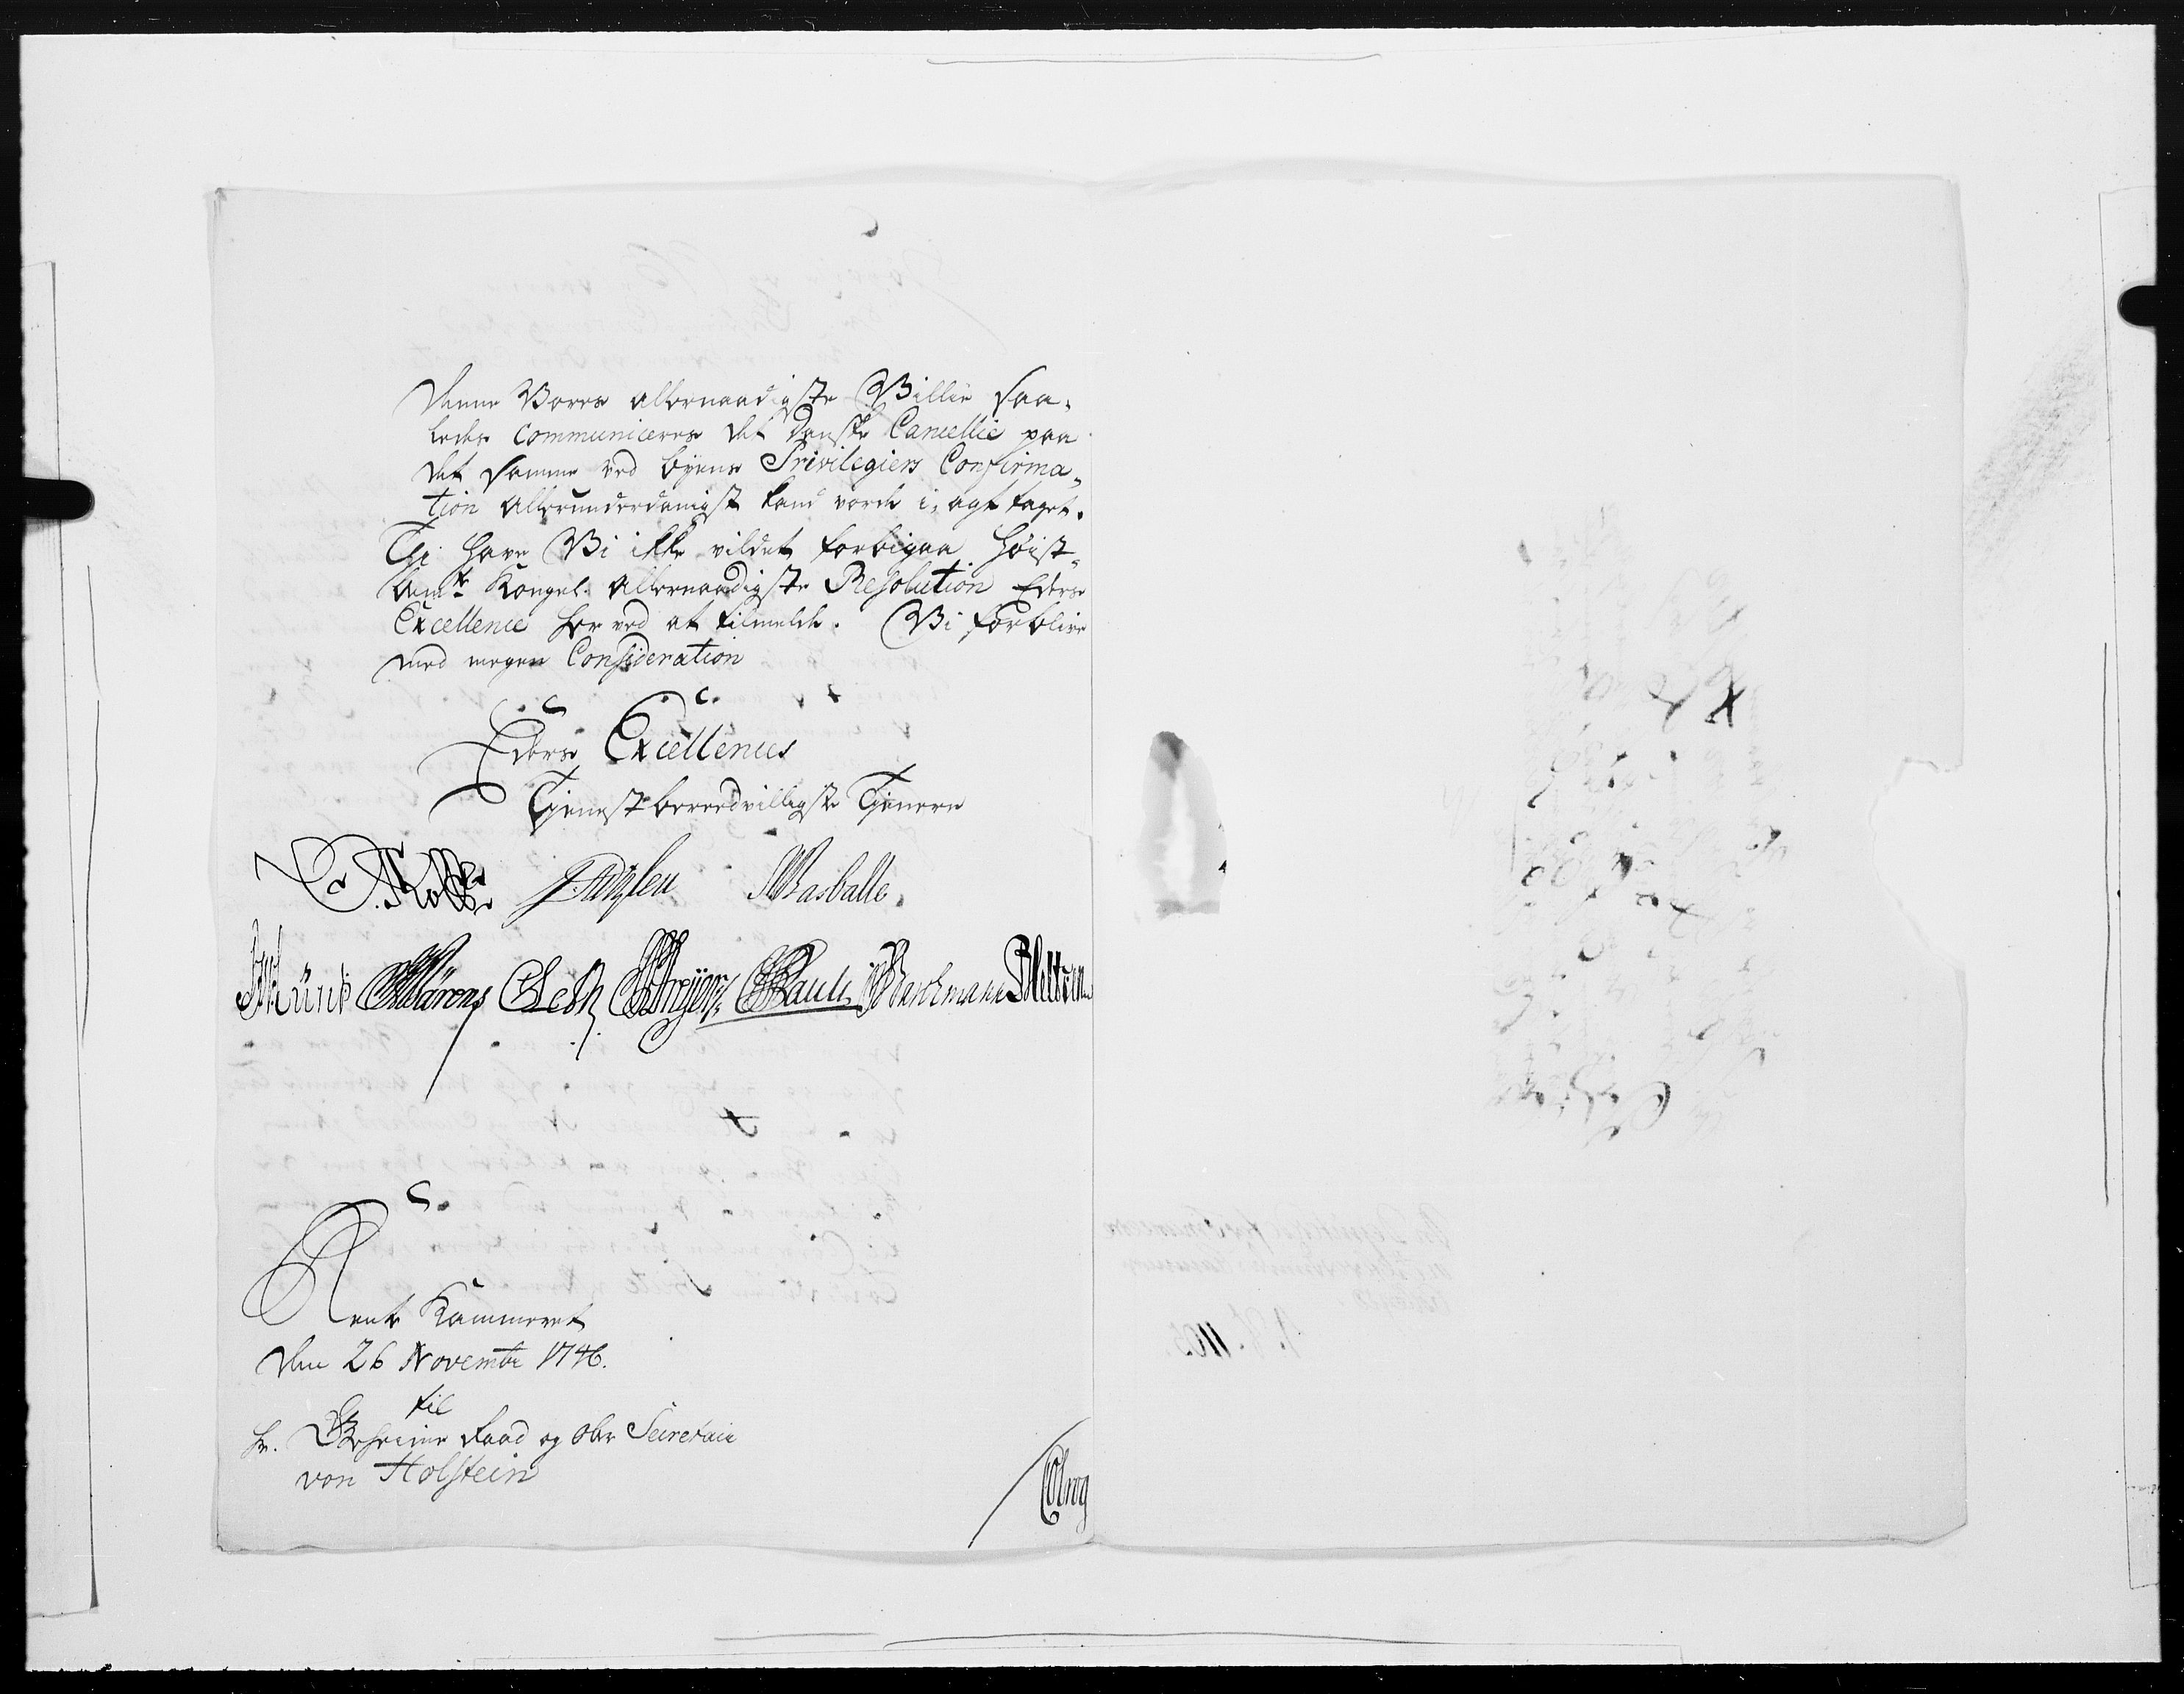 denne Vores allernaadigste Villie saa-
ledes communiceres det Danske Cancellie paa
det samme ved byens Privilegiers Confirma-
tion allerunderdanigst kand vorde i, agt taget.
Thi have Vi ikke vildet forbigaa høist-
bemte Kongel. allernaadigste Resolution Eders
Excellence her ved at tilmelde. Vi forblive
med megen Consideration
Eders Excellences
Tjenstbereedvilligste Tjenere
Rasballe.
Leth Pauli Barchmann
Rente Kammeret
den 26 Novembr 1746.
til
hr. Geheime Raad og Ober Secretair
von Holstein